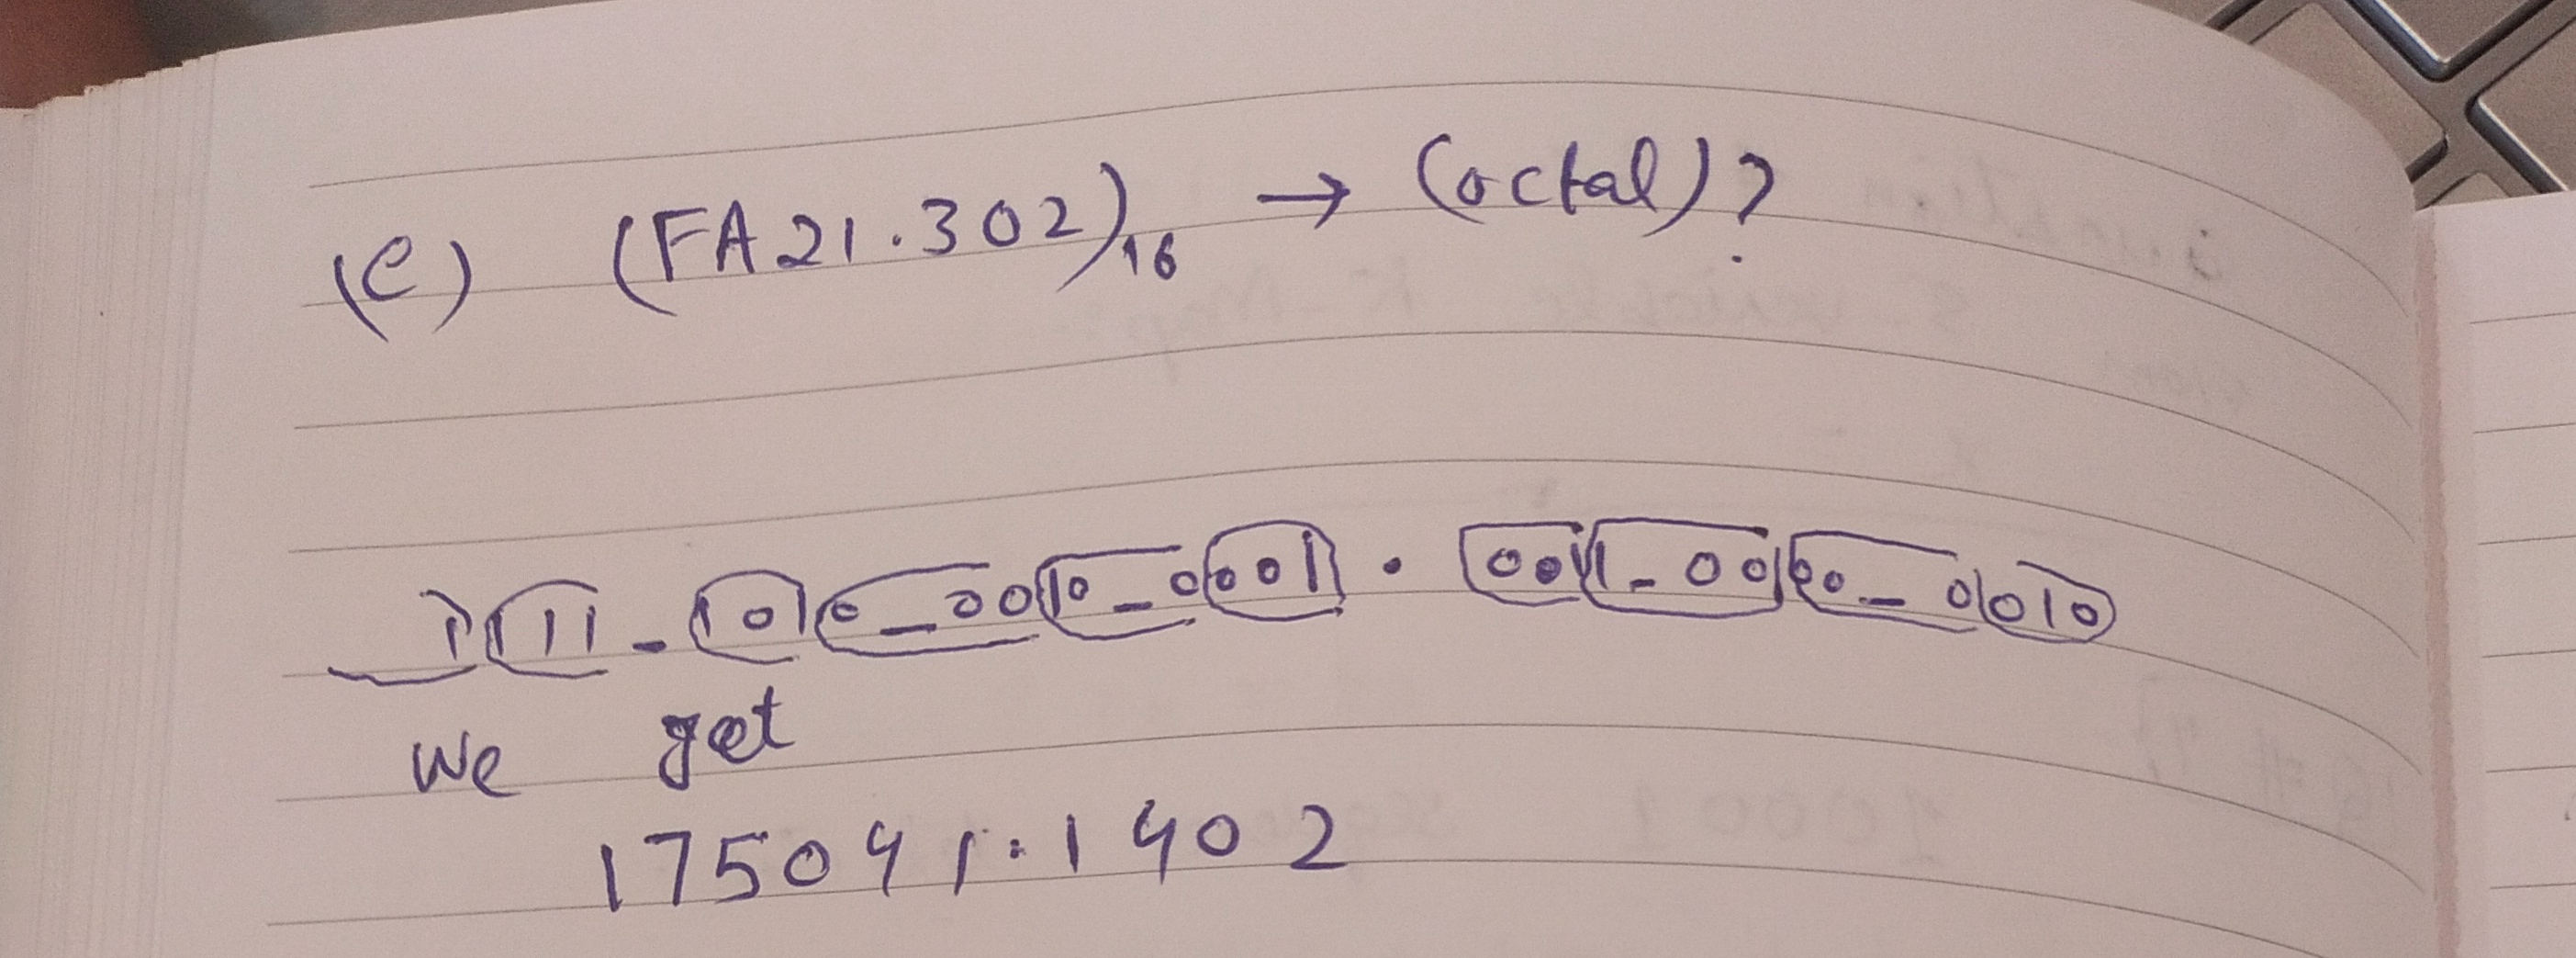 (e) (FA21.302)16 → (octal)?
1111_1010_0010_0001 . 0011_0000_0010
We get
175041.1402